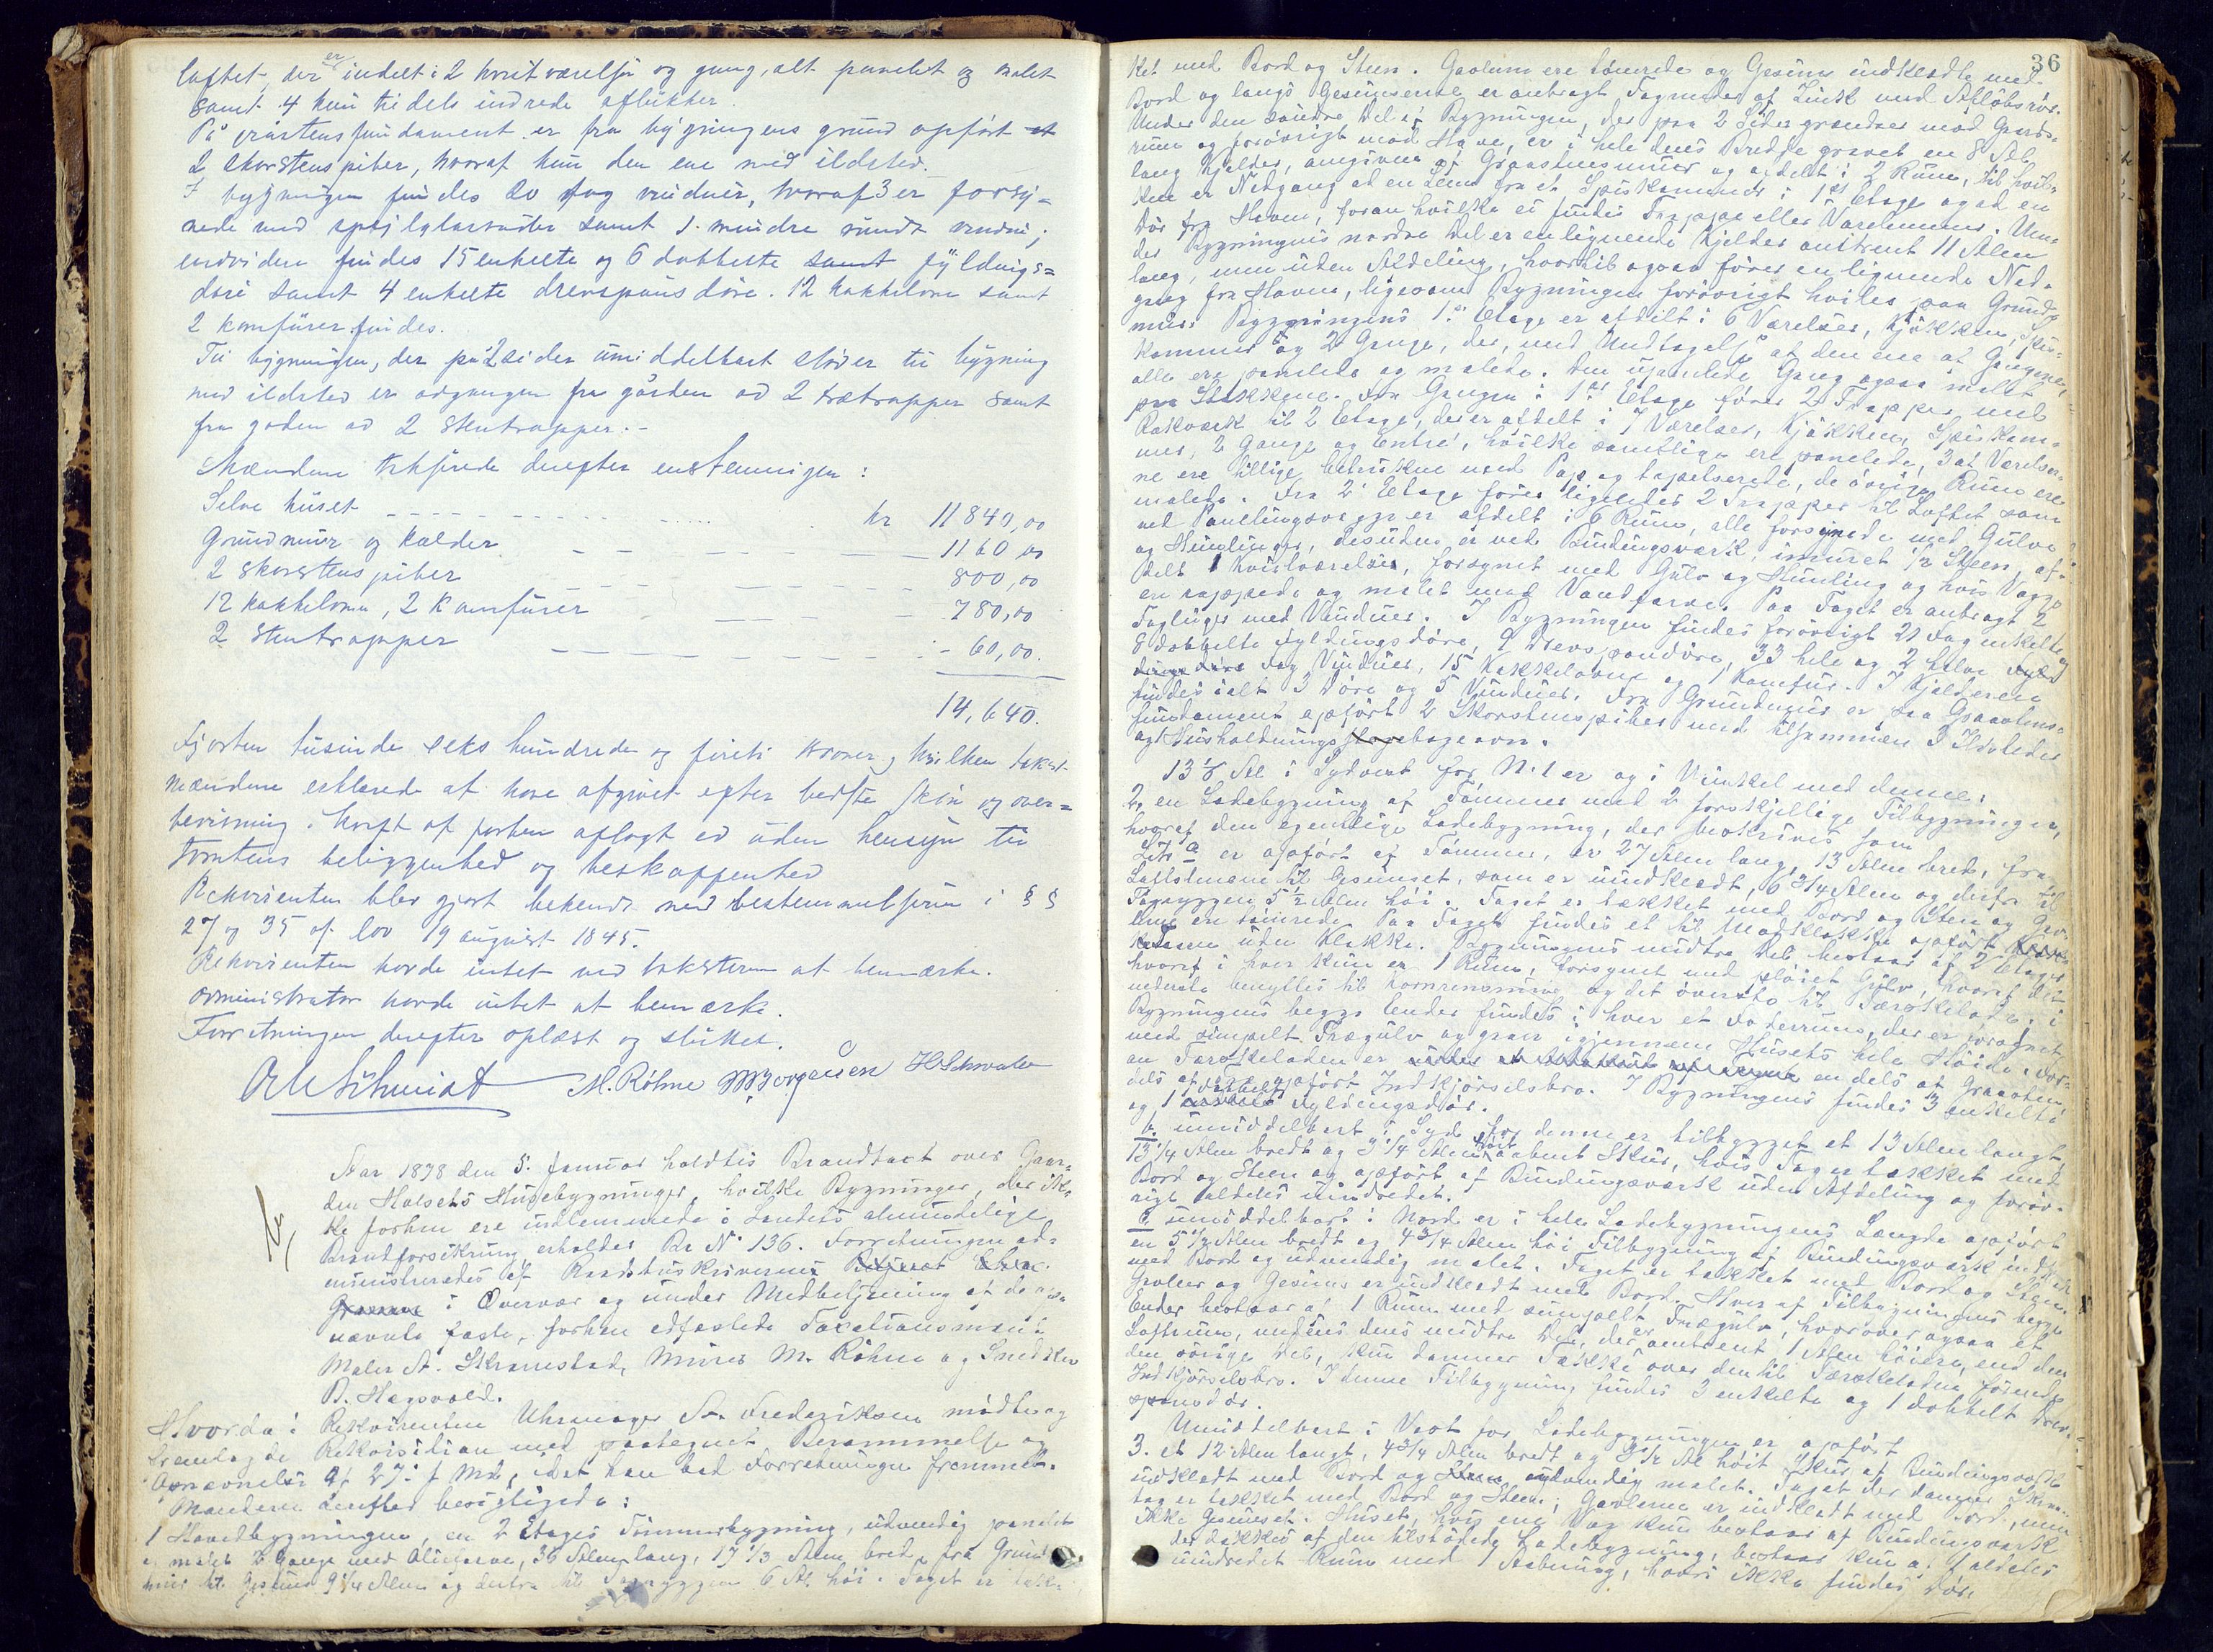 loftet, der er indelt i 2 kvistværelser og gang, alt panelet og malet
samt 4 kun tildels indrede aflukker.
På gråstensfundament er fra bygningens grund opført
2 skorstenspiber, hvoraf kun den ene med ildsted.
I bygningen findes 20 fag vinduer, hvoraf 3 er forsy=
nede med speilglasruder samt 1 mindre rundt vindu;
endvidere findes 15 enkelte og 6 dobbelte samt fyldings=
døre samt 4 enkelte drevspånsdøre. 12 kakkelovne samt
2 komfurer findes.
Til bygningen, der på 2 sider umiddelbart støder til bygning
med ildsted er adgangen fra gården ad 2 trætrapper samt
fra gaden ad 2 stentrapper. -
Mændene takserede derefter enstemmigen:
Selve huset kr 11840,00
Grundmur og kælder 1160,00
2 skorstenspiber 800,00
12 kakkelovne, 2 komfurer 780,00
2 stentrapper 60,00.
14,640.
Fjorten tusinde seks hundrede og firti kroner, hvilken takst
mændene erklærede at have afgivet efter bedste skjøn og over=
bevisning i kraft af forhen aflagt ed uden hensyn til
tomtens beliggenhed og beskaffenhed
Rekvirenten blev gjort bekendt med bestemmelserne i § §
27 og 35 af lov 19 august 1845.
Rekvirenten havde intet ved taksten at bemærke.
Administrator havde intet at bemærke.
Forretningen derefter oplæst og sluttet.
M. Röhne H Schwabe
Aar 1898 den 5. Januar holdtes Brandtaxt over Gaar=
den Hulsets Husebygninger, hvilke Bygninger, der ik=
ke forhen ere indlemmede i Landets almindelige
Brandforsikring erholder Br. No 136. Forretningen ad=
ministreredes af Raadstuskriverens
i Overvær og under Medbetjening af de
nævnte faste, forhen edfæstede Taxationsmænd
Maler A. Skramstad, Murer M. Röhne og Snedker
B. Hagsvold.
Hvorda: Rekvirenten Uhrmager Fredriksen mødte og
fremlagde Rekvisition med paategnet Berammelse og
Opnævnelse af 27. f. Md., idet han bad Forretningen fremmet.
Mændene derefter besigtigede:
1 Hovedbygningen, en 2 Etages Tømmerbygning, udvendig panelet
og malet 2 Gange med Oliefarve, 36 Alen lang, 17 1/3 Alen bred, fra Grund
mur til Gesims 9 1/4 Alen og derfra til Tagryggen 6 Al. høi. Taget er tæk=
36
ket med Bord og Steen. Gavlene ere tømrede og Gesims indklædte med
Bord og langs Gesimserne er anbragt Tagrender af Zink med Afløbsrør.
Under den søndre Del af Bygningen, der paa 2 Sider grændser mod Gaards=
rum og forøvrigt mod Have, er i hele dens Bredde gravet en 8 Al.
lang Kjelder, omgiven af Graasteensmuur og afdelt i 2 Rum, til hvil=
ken er Nedgang ad en Lem fra et Spiskammer i 1ste Etage og ad en
Dør fra Haven, foran hvilke ei findes Trappe eller Værelemmer. Un=
der Bygningens nordre Del er en lignende Kjelder omtrent 11 Alen
lang, men uden Afdeling, hvortil ogsaa fører en lignende Ned=
gang fra Haven, ligesom Bygningen forøvrigt hviler paa Grund=
mur. Bygningens 1ste Etage er afdelt i 6 Værelser, Kjøkken, Spis=
kammer og 2 Gange, der, med Undtagelse af den ene af Gangene,
alle ere panelede og malede. Den upanelede Gang ogsaa malet
paa Stokkene. Fra Gangen i 1ste Etage fører 2 Trapper med
Rækværk til 2 Etage, der er afdelt i 7 Værelser, Kjøkken, Spiskam=
mer, 2 Gange og Entré, hvilke samtlige ere panelede, 3 af Værelser=
ne ere tillige betrukne med Pap og tapetserede, de øvrige Rum ere
malede. Fra 2. Etage fører ligeledes 2 Trapper til Loftet som
ved Panelingsvægge er afdelt i 6 Rum, alle forsynede med Gulve
og Himlinger, desuden er ved Bindingsværk, inmuret 1/2 Steen, af=
delt 1 Kvistværelse, forsynet med Gulv og Himling og hvis Vægge
ere pappede og malet med Vandfarve. Paa Taget er anbragt 2
Tagluger med Vinduer. I Bygningen findes forøvrigt 21 Fag enkelte og
8 dobbelte Fyldingsdøre, 9 Drevspandøre, 33 hele og 2 halve
Fag Vinduer, 15 Kakkelovne og 1 Komfur. I Kjelderen
findes ialt 3 Døre og 5 Vinduer. Fra Grundmur er paa Graasteens=
fundament opført 2 Skorstenspiber med tilsammen 3 Ildsteder
og Husholdnings bageovn.
13 1/8 Al i Sydvest for No 1 er og i Vinkel med denne:
2, en Ladebygning af Tømmer med 2 forskjellige Tilbygninger,
hvoraf den egentlige Ladebygning, der beskrives som
Litr a er opført af Tømmer, er 27 Alen lang, 13 Alen bred, fra
til Gesimset, som er uindklædt, 6 3/4 Alen og derfra til
Tagryggen 5 1/2 Alen høi. Taget er tækket med Bord og Steen og Gav=
lene ere tømrede. Paa Taget findes et til Madklokke opført
uden Klokke. Bygningens midtre Del bestaar af 2 Etager
hvoraf i hver kun er 1 Rum, forsynet med pløiet Gulv, hvoraf det
nederste benyttes til Kornrensning og det øverste til Tærskelade. I
Bygningens begge Ender findes i hver et Foderrum, der er forsynet
med simpelt Trægulv og gaar igjennem Husets hele Høide. For=
an Tærskeladen er endels af Graasten
dels af opført Indkjørselsbro. I Bygningens findes 3 enkelte
og 1 dobbelt Fyldingsdør.
b. umiddelbart i Syd for denne er tilbygget et 13 Alen langt,
13 1/4 Alen bredt og 3 1/4 Alen høit aabent Skur, hvis Tag er tækket med
Bord og Steen og opført af Bindingsværk uden Afdeling og forøv=
rigt aldeles uindredet.
c. umiddelbart i Nord er i hele Ladebygningens Længde opført
en 5 1/2 Alen bredt og 4 3/4 Alen høi Tilbygning af Bindingsværk indklædt
med Bord og udvendig malet. Taget er tækket med Bord og Steen.
Gavler og Gesims er indklædt med Bord. Hver af Tilbygningens begge
Ender bestaar af 1 Rum med simpelt Trægulv, hvorover ogsaa et
Loftrum, medens dens midtre Del, der er omtrent 1 Alen høiere, end den
den øvrige Del, kun danner Tække over den til Tærskeladen førende
Indkjørselsbro. I denne Tilbygning findes 3 enkelte og 1 dobbelt Drev=
spansdør.
Umiddelbart i Vest for Ladebygningen er opført
3. et 12 Alen langt, 4 3/4 Alen bredt og 3 1/2 Al høit Skur af Bindingsværk
indklædt med Bord og udvendig malet. Taget der danner Skraa=
tag er tækket med Bord og Steen; Gavlerne er indklædt med Bord, men
ikke Gesimset. Huset, hvis ene Væg kun bestaar af Bindingsværk
der dækkes af den tilstødende Ladebygning, bestaar kun af 1 aldeles
uindredet Rum med 1 Aabning, hvori ikke findes Dør.